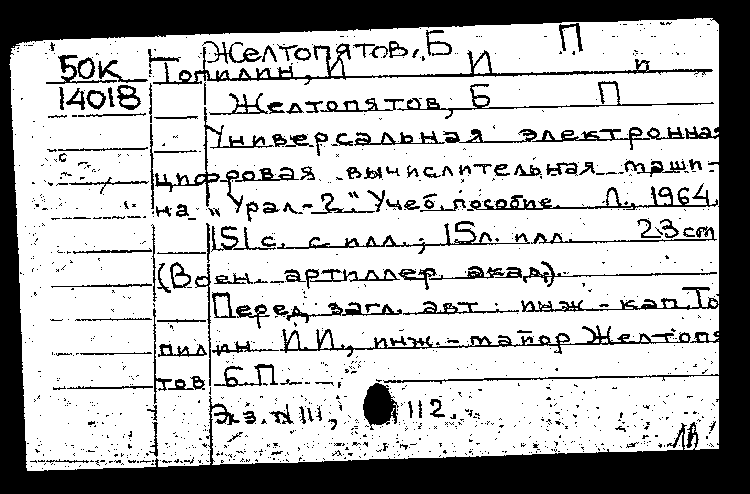 Желтопятов, Б П
50К Топилин, И И п
14018 Желтопятов, Б П
Универсальная электронная
цифровая вычислительная маши-
на "Урал-2." Учеб. пособие. Л., 1964.
151 с. с илл.; 15л. илл. 23 cm
(Воен. артиллер. акад.).
Перед загл. авт.: инж-кап. То
пилин И.И., инж.-майор Желтопя
тов Б.П.
Экз. N 111, 112.